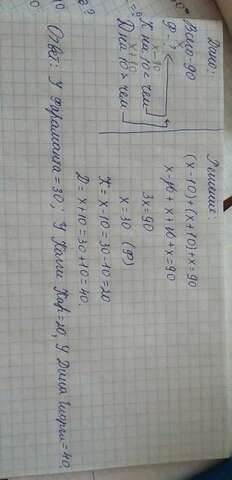 Дано:
Всего-90
Ф-? x
К на 10 < чем x-10
D на 10 > чем x+10
Решение:
(x-10)+(x+10)+x=90
x-10+x+10+x=90
3x=90
x=30 (Ф)
К=x-10=30-10=20
D=x+10=30+10=40
Ответ: У Фараманта=30; У Кагги Кар=20, У Дина Гиора=40